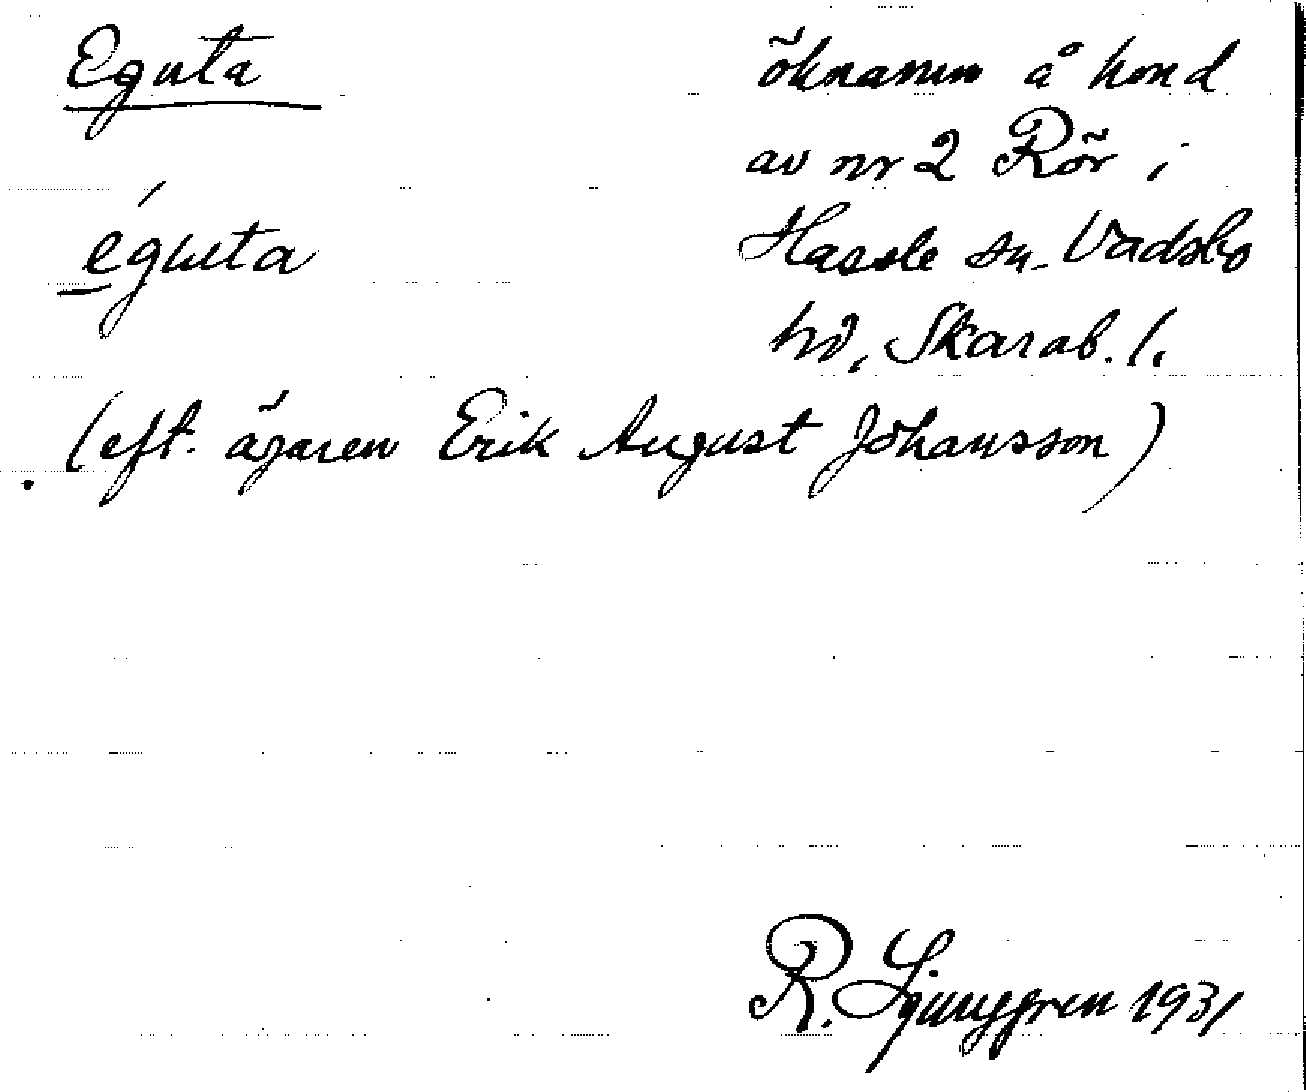 Eguta
öknamn å hmd
av nr 2 Rör i
éguta
Hassle sn. Vadsbo
hd, Skarab. l.
(eft. ägaren Erik August Johansson)
R. Ljunggren 1931